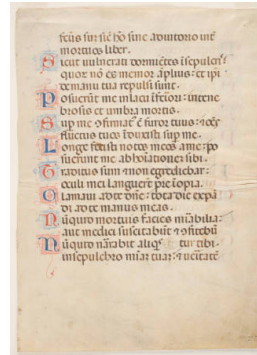 ſcūs ſum ſic̄ hō ſine adiutorio int̄
mortuos liber.
Sicut uulnerati dormiētes ī ſepulcrꝭ
quoꝝ nō es memor āplius: et ipi
de manu tua repulſi ſunt.
Poſuerūt me in lacu īferiori: in tene
broſis et umbra mortis.
Sup me ꝯfirmat̄ ē furor tuus: et oēs
fluctus tuos īduxiſti ſup me.
Longe feciſti notos meos a me: po
ſuerunt me abhoīationē ſibi.
Traditus ſum et non egrediebar:
oculi mei languerūt p̄e īopia.
Clamaui ad te dn̄e: tota die expā
di ad te manus meas.
Nūquid mortuis facies mirabilia:
aut medici ſuſcitabūt et ꝯfitebūt̄
Nūquid narrabit aliqs̄ tibi.
in ſepulcro miām tuam: et ueritatē